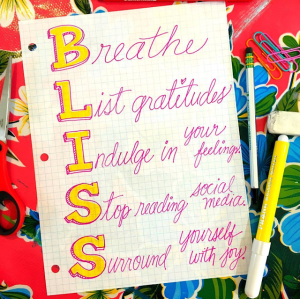 Breathe
List gratitudes
Indulge in your feelings.
Stop reading social media.
Surround yourself with joy!